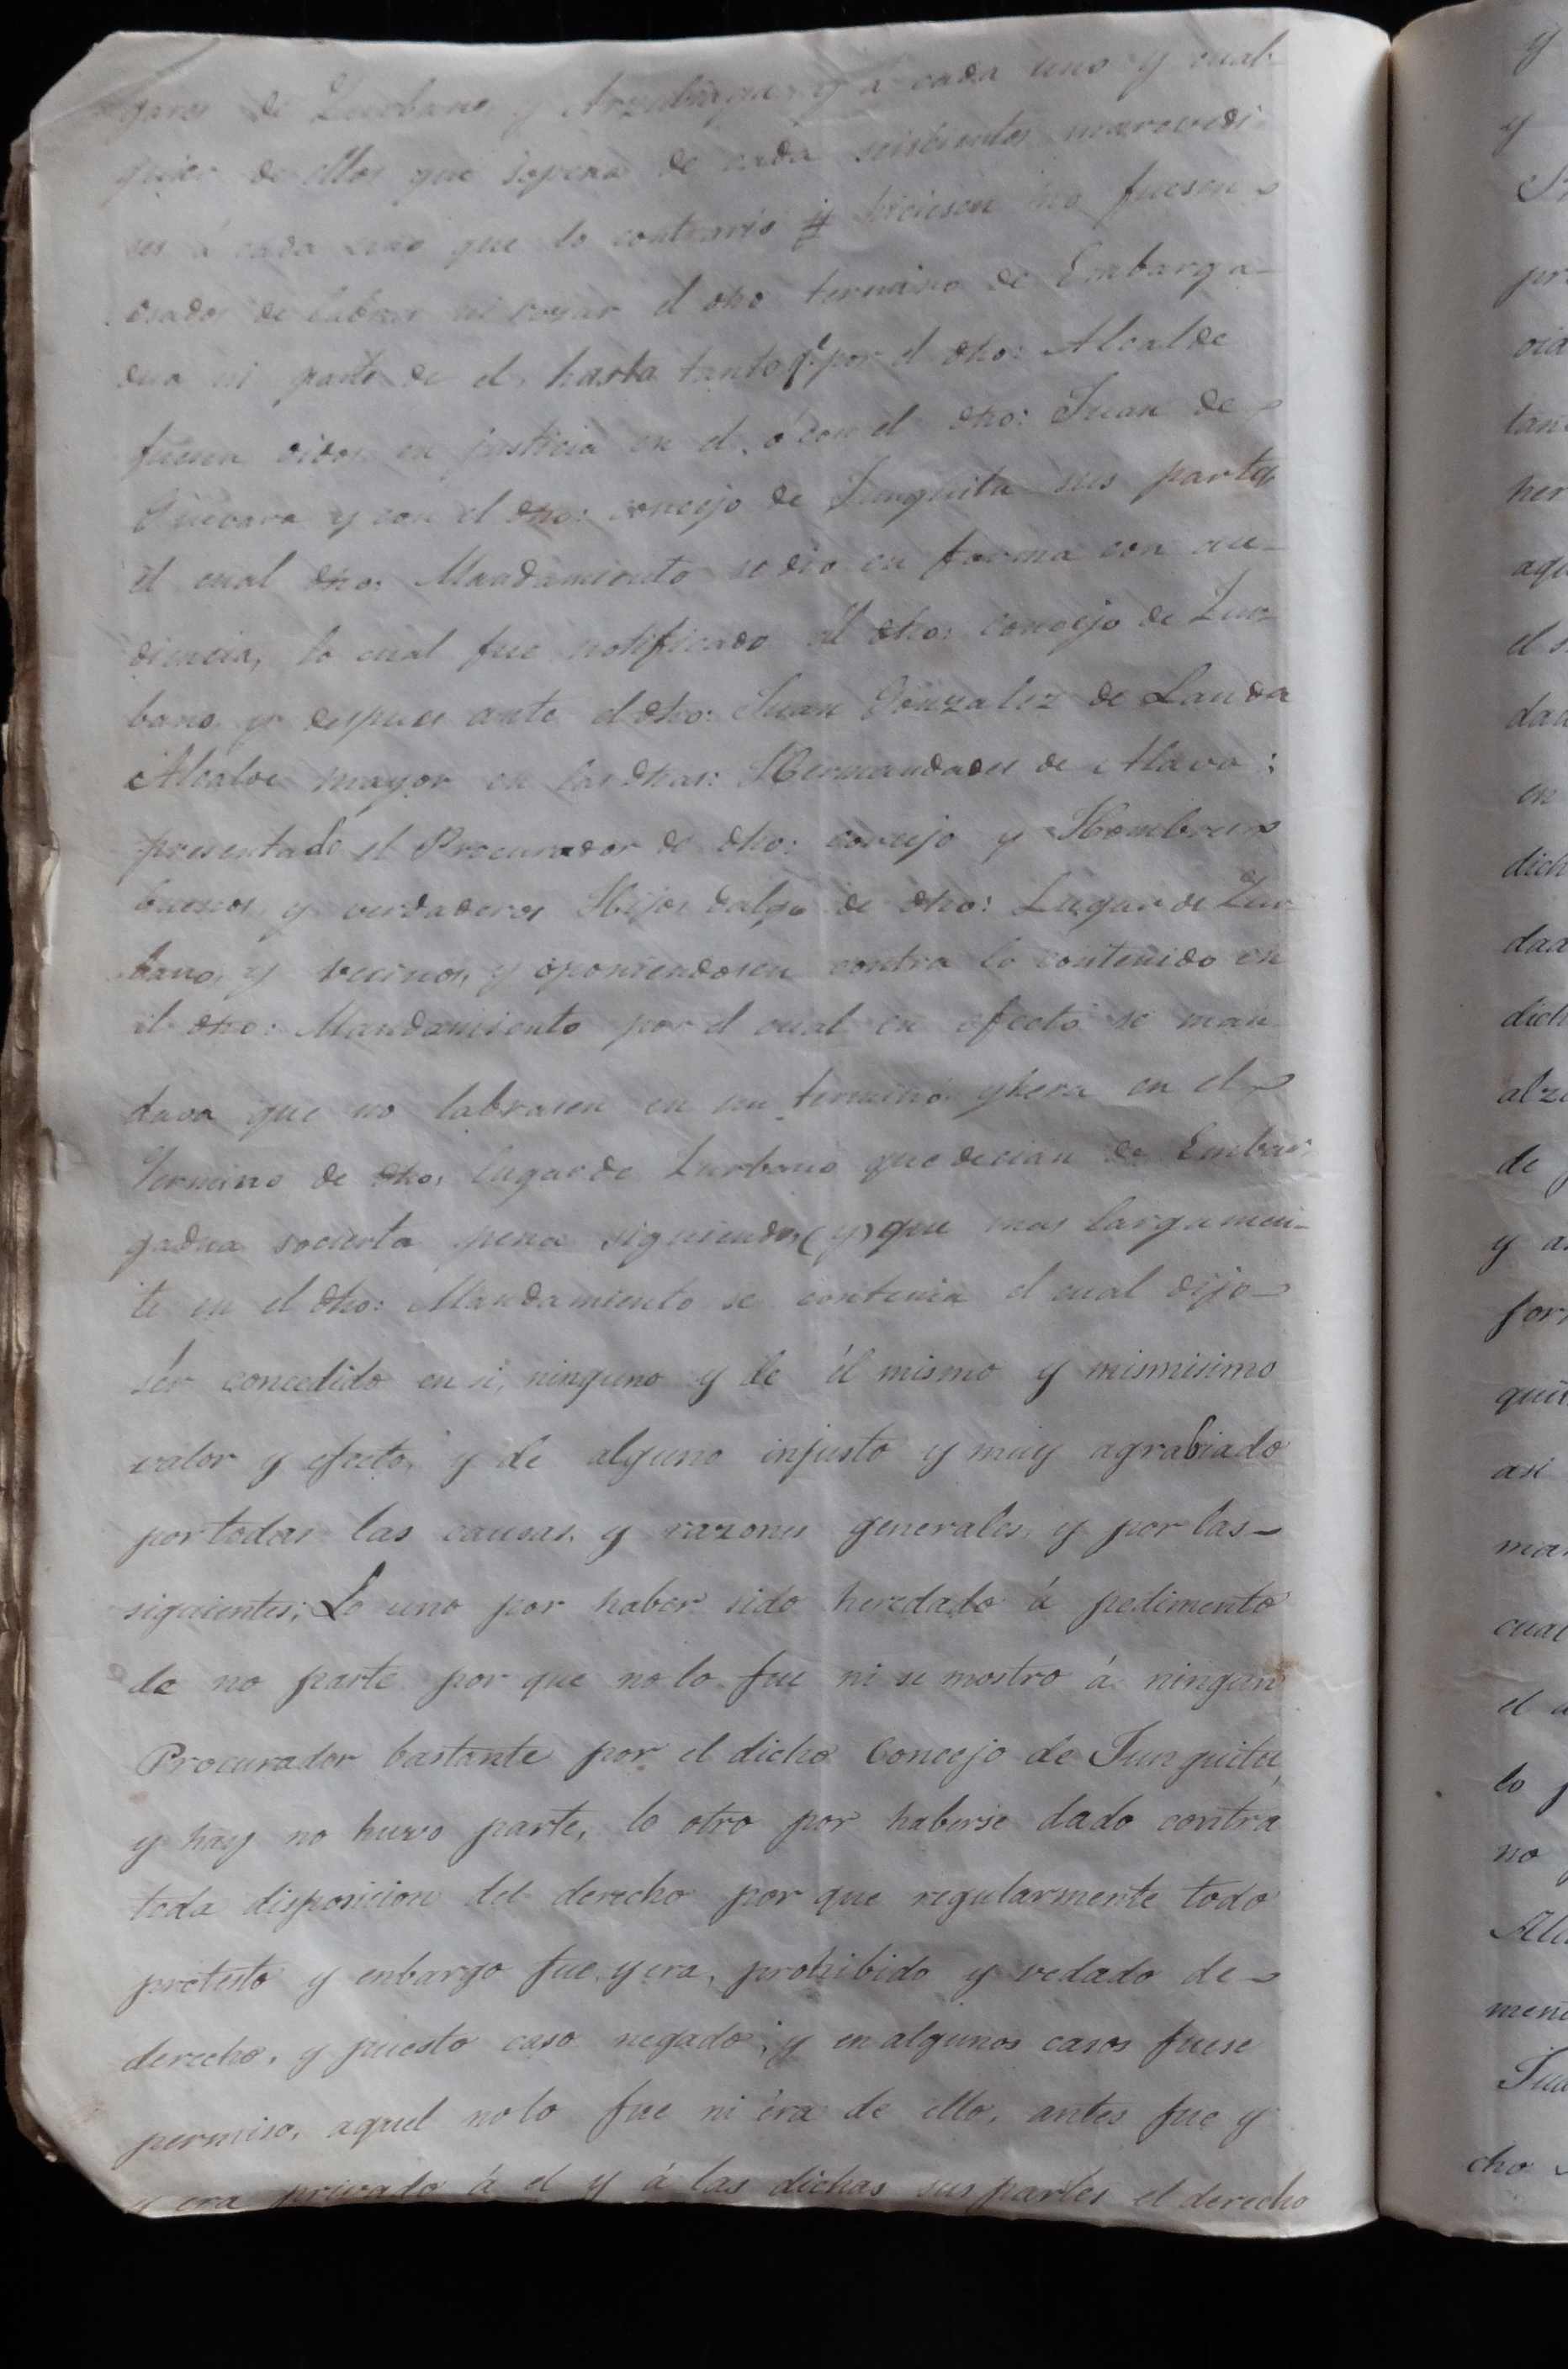 gares de Zurbano y Arzubiaga, y á cada uno y cual-
quier de ellos que sopena de cada seiscientos maravedi-
ses á cada uno que lo contrario hiciesen no fuesen
osados de labrar ni rozar el dho termino de Embarga-
dua ni parte de el, hasta tanto q.e por el dho: Alcalde
fuesen oidos en justicia en el, ó con el dho: Juan de
Guevara y con el dho: concejo de Junguita sus partes
el cual dho: Mandamiento se dio en forma con au-
diencia, lo cual fue notificado al dho: concejo de Zur-
bano y despues ante el dho: Juan Gonzalez de Landa
Alcalde mayor en las dhas: Hermandades de Alava;
presentado el Procurador de dho: concejo y Hombres
buenos, y verdaderos Hijos dalgo de dho: Lugar de Zur-
bano, y vecinos, y oponiendosen contra lo contenido en
el dho: Mandamiento por el cual en efecto se man-
dava que no labrasen en un termino yhera en el
Termino de dho: lugar de Zurbano que decian de Embar-
gadua socierta pena siguiendo, (y) que mas largamen-
te en el dho: Mandamiento se contenia el cual dijo
sér concedido en si, ninguno y de él mismo y mismisimo
valor y efecto, y de alguno injusto y muy agrabiado
por todas las causas, y razones generales, y por las
siguientes; Lo uno por haber sido heredado á pedimento
de no parte por que no lo fue ni se mostro á ningun
Procurador bastante por el dicho Concejo de Junguita,
y hay no huvo parte, lo otro por haberse dado contra
toda disposicion del derecho por que regularmente todo
protesto y enbargo fue, y era, prohibido y vedado de
derecho, y puesto caso negado, y en algunos casos fuese
permiso, aquel no lo fue ni éra de ello, antes fue y
y era privado á el y á las dichas sus partes el derecho